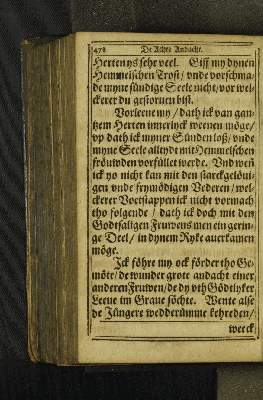 478 De Achte Andacht.
Herten ys sehr veel. Giff my dynen
Hemmelschen Trost / vnde vorschma-
de myne sündige Seele nicht / vor wel-
ckerer du gestoruen bist.
Vorleene my / dath ick van gan-
tzem Herten innerinck weenen möge /
vp dath ick myner Sünden loß / vnde
myne Seele alltydt mit Hemmelschen
fröuwden vorfüllet werde. Vnd weñ
ick yo nicht kan mit den starckgelöui-
gen vnde frymödigen Vederen / wel-
ckerer Voetstappen ick nicht vormach
tho folgende / dath ick doch mit den
Godtsaligen Fruwens men ein gerin-
ge Deel / in dynem Ryke auerkamen
möge.
Ick föhre my ock förder tho Ge-
möte / de wunder grote andacht einer
anderen Fruwen / de dy vth Gödtlyker
Leeue im Graue söchte. Wente alse
de Jüngere wedderümme kehreden /
weeck